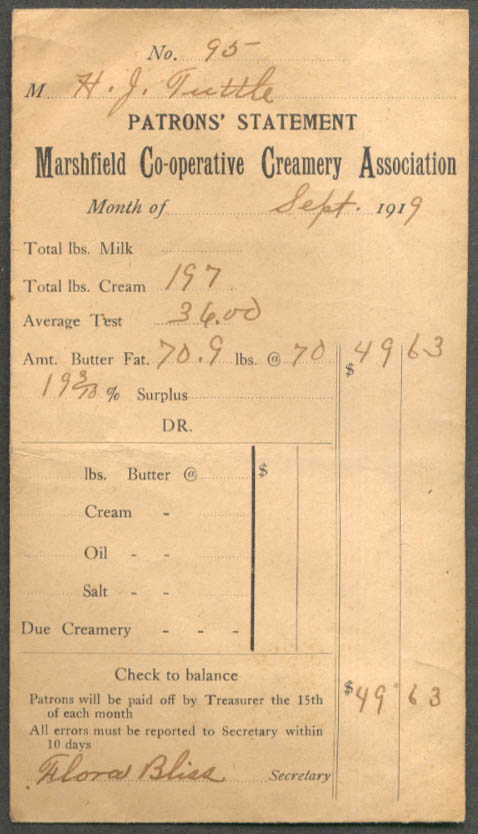 No. 95
M H. J. Tuttle
PATRONS' STATEMENT
Marshfield Co-operative Creamery Association
Month of Sept. 1919
Total lbs. Milk
Total lbs. Cream 197
Average Test 36.00
Amt. Butter Fat. 70.9 lbs. @ 70 $ 49 63
19 3/10 % Surplus
DR.
lbs. Butter @ $
Cream -
Oil - -
Salt - -
Due Creamery - - -
Check to balance
$49 63
Patrons will be paid off by Treasurer the 15th
of each month
All errors must be reported to Secretary within
10 days
Flora Bliss Secretary